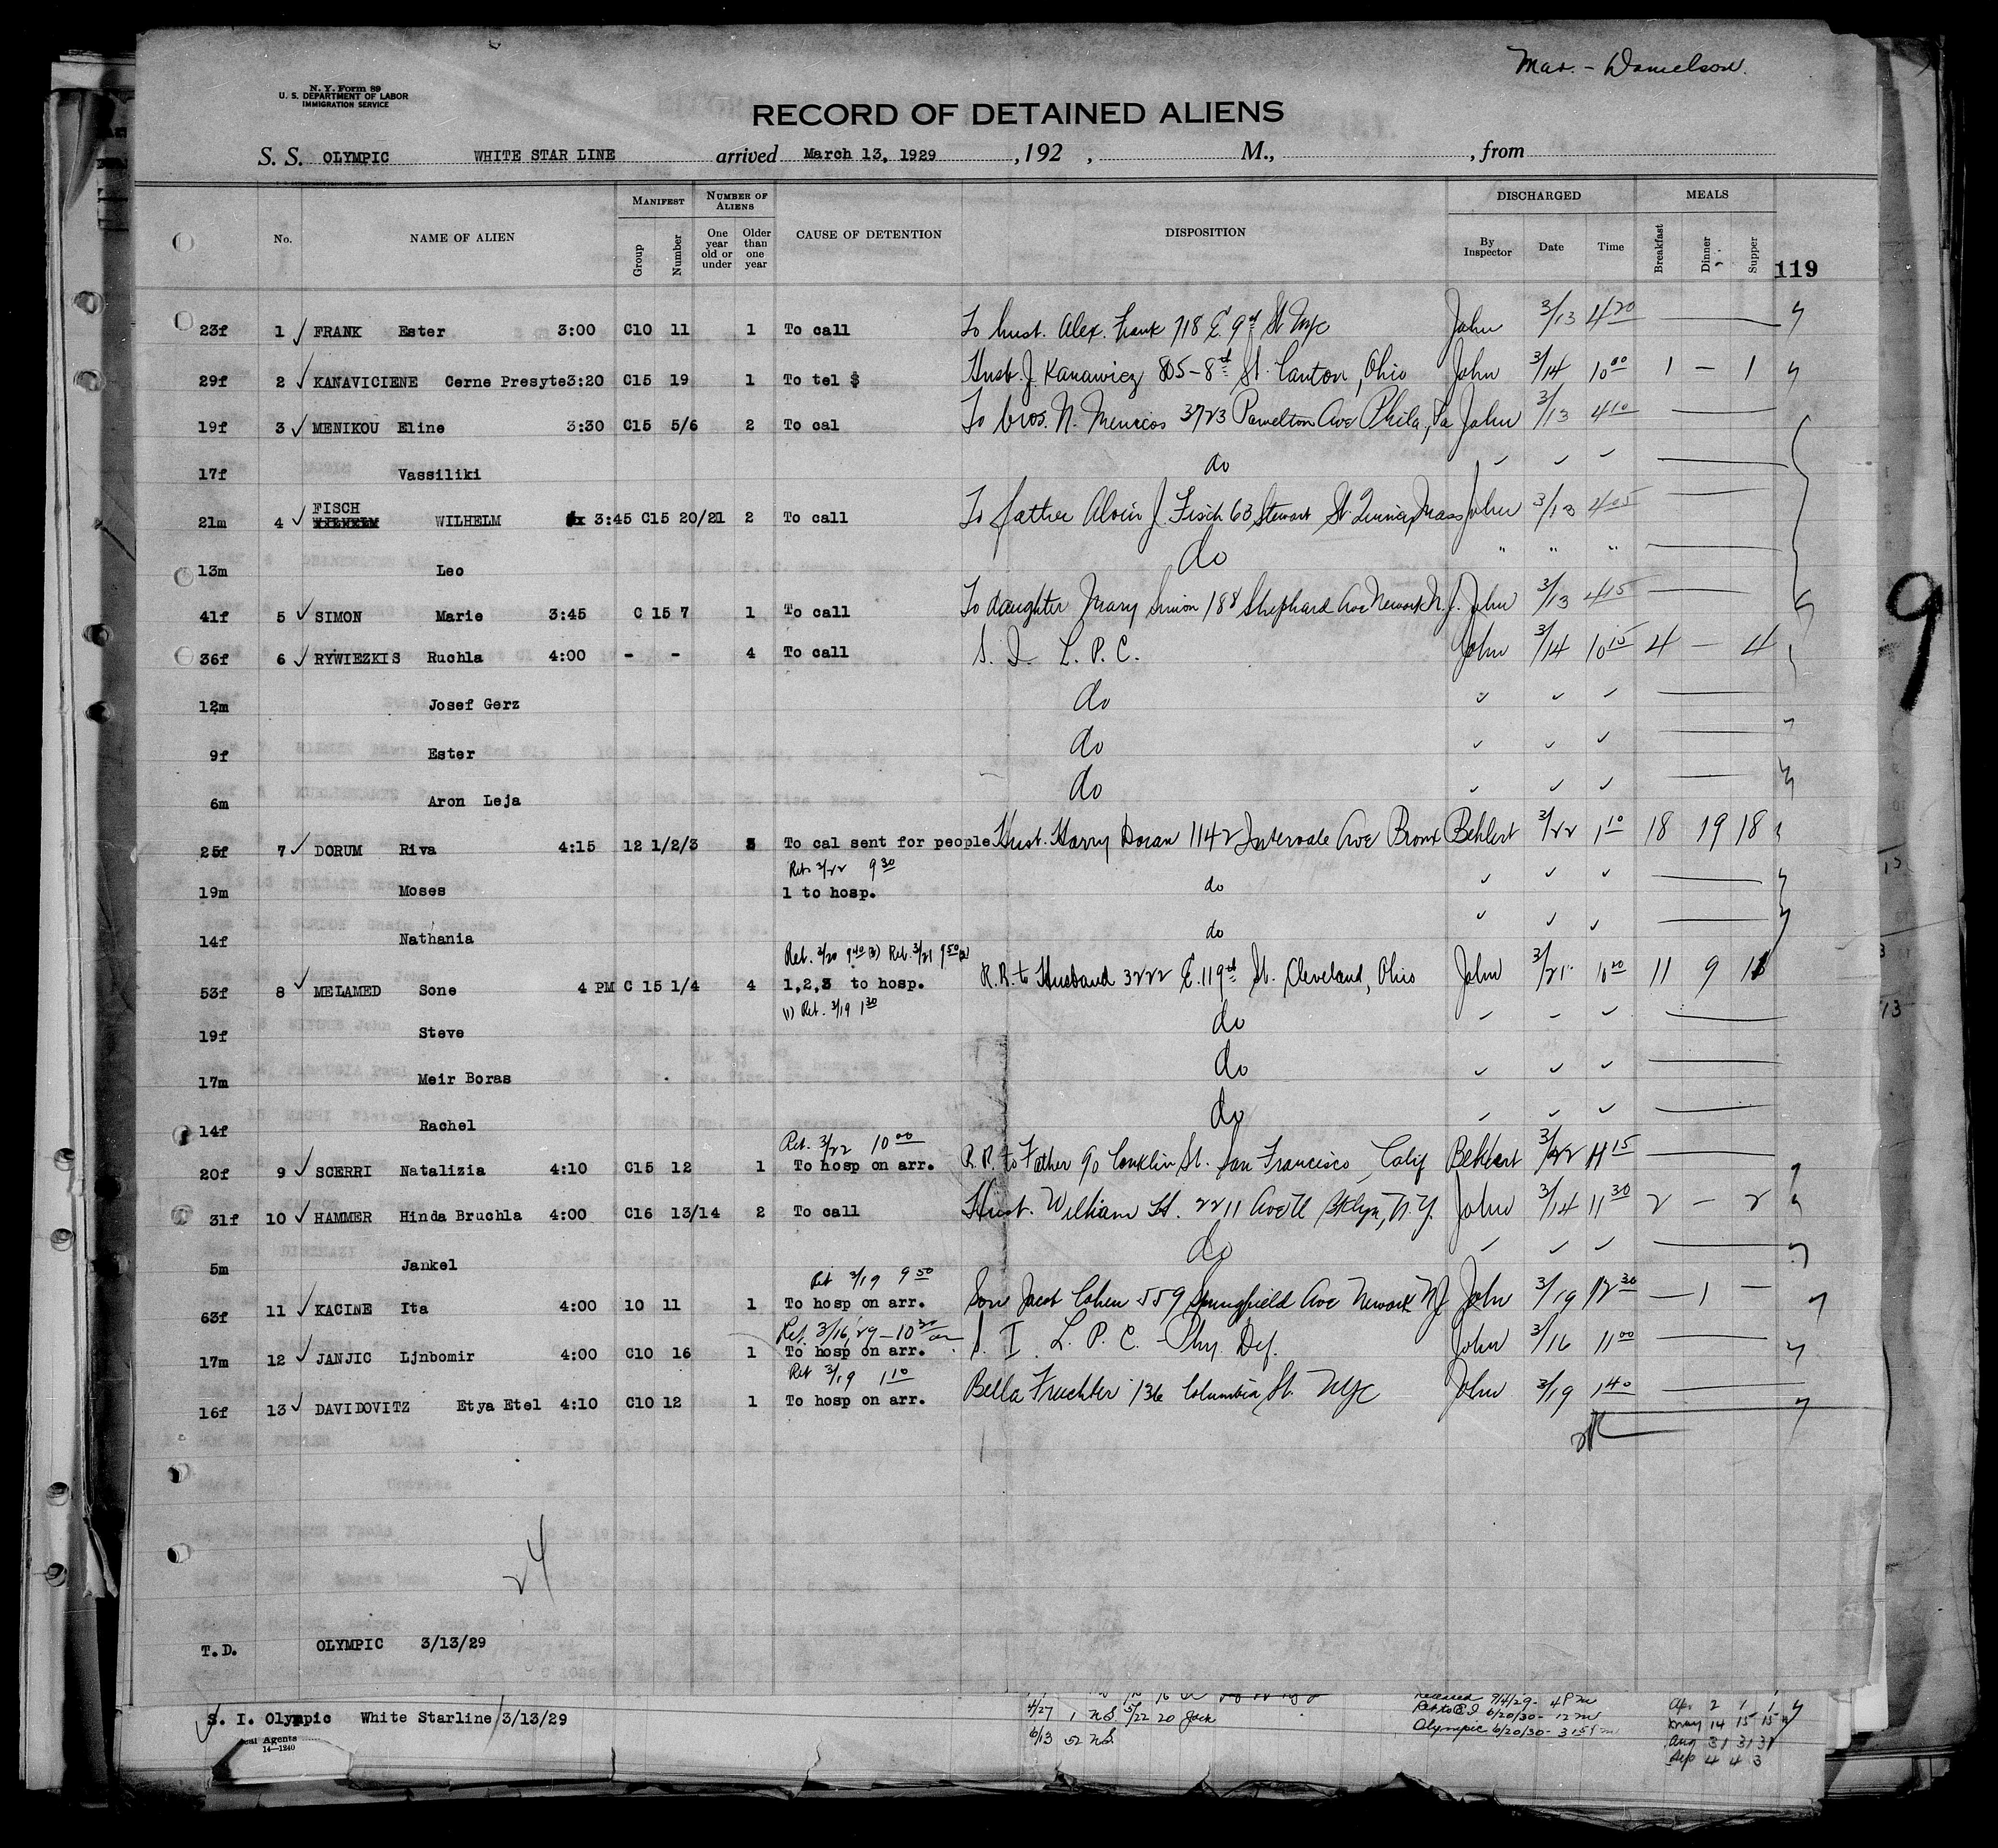 Mar. - Danielson.
N. Y. Form 89
U. S. DEPARTMENT OF LABOR
IMMIGRATION SERVICE
RECORD OF DETAINED ALIENS
S. S. OLYMPIC WHITE STAR LINE arrived March 13, 1929 , 192 , M., , from
No. NAME OF ALIEN MANIFEST Group Number NUMBER OF ALIENS One year old or under Older than one year CAUSE OF DETENTION DISPOSITION DISCHARGED By Inspector Date Time MEALS Breakfast Dinner Supper 119
23f 1 ✓ FRANK Ester 3:00 C10 11 1 To call To husb. Alex. Frank 718 E. 9th St NYC John 3/13 4 20
29f 2 ✓ KANAVICIENE Cerne Presyte 3:20 C15 19 1 To tel $ Husb. J. Kanawicz 805-8th St. Canton, Ohio John 3/14 10 00 1 — 1
19f 3 ✓ MENIKOU Eline 3:30 C15 5/6 2 To cal To bros. N. Menicos 3723 Powelton Ave Phila, Pa John 3/13 4 10
17f Vassiliki do ✓ ✓ ✓
21m 4 ✓ FISCH WILHELM 3:45 C15 20/21 2 To call To father Alvin J. Fisch 63 Stewart St. Quincy, Mass John 3/13 4 05
13m Leo do " " "
41f 5 ✓ SIMON Marie 3:45 C 15 7 1 To call To daughter Mary Simon 188 Shephard Ave Newark N. J. John 3/13 4 15
36f 6 ✓ RYWIEZKIS Ruchla 4:00 - - 4 To call S. I. L. P. C. John 3/14 10 15 4 — 4
12m Josef Gerz do ✓ ✓ ✓
9f Ester do ✓ ✓ ✓
6m Aron Leja do ✓ ✓ ✓
25f 7 ✓ DORUM Riva 4:15 12 1/2/3 3 To cal sent for people Husb. Harry Doran 1142 Intervale Ave Bronx Behlert 3/22 1 10 18 19 18
Ret. 3/22 9 30
19m Moses 1 to hosp. do ✓ ✓ ✓
14f Nathania do ✓ ✓ ✓
Ret. 3/20 9 40 (3) Ret. 3/21 9 50 (2)
53f 8 ✓ MELAMED Sone 4 PM C 15 1/4 4 1,2,3 to hosp. R.R. to Husband 3222 E. 119th St. Cleveland, Ohio John 3/21 10 20 11 9 11
(1) Ret. 3/19 1 30
19f Steve do ✓ ✓ ✓
17m Meir Boras do ✓ ✓ ✓
14f Rachel do ✓ ✓ ✓
Ret. 3/22 10 00
20f 9 ✓ SCERRI Natalizia 4:10 C15 12 1 To hosp on arr. R.R. to Father 90 Conklin St. San Francisco, Calif Behlert 3/22 11 15
31f 10 ✓ HAMMER Hinda Bruchla 4:00 C16 13/14 2 To call Husb. William H. 2211 Ave U Bklyn, N.Y. John 3/14 11 30 2 — 2
5m Jankel do ✓ ✓ ✓
Ret 3/19 9 50
63f 11 ✓ KACINE Ita 4:00 10 11 1 To hosp on arr. Son Jacob Cohen 559 Springfield Ave Newark NJ John 3/19 12 30 — 1 —
Ret. 3/16/29 - 10 30 am
17m 12 ✓ JANJIC Ljnbomir 4:00 C10 16 1 To hosp on arr. S. I. L. P. C. - Phy. Def. John 3/16 11 00
Ret 3/19 1 10
16f 13 ✓ DAVIDOVITZ Etya Etel 4:10 C10 12 1 To hosp on arr. Bella Fruchter 136 Columbia St. NYC John 3/19 1 40
24
T.D. OLYMPIC 3/13/29
9
S. I. Olympic White Starline 3/13/29
14—1240
4/27 1 N.S. 5/22 20 Jack
6/13 52 N.S.
Released 9/4/29 - 4 P m
6/20/30 - 12 m
Olympic 6/20/30 - 3 15 P m
Apr 2 1 1
May 14 15 15
Aug 31 31 31
Sep 4 4 3